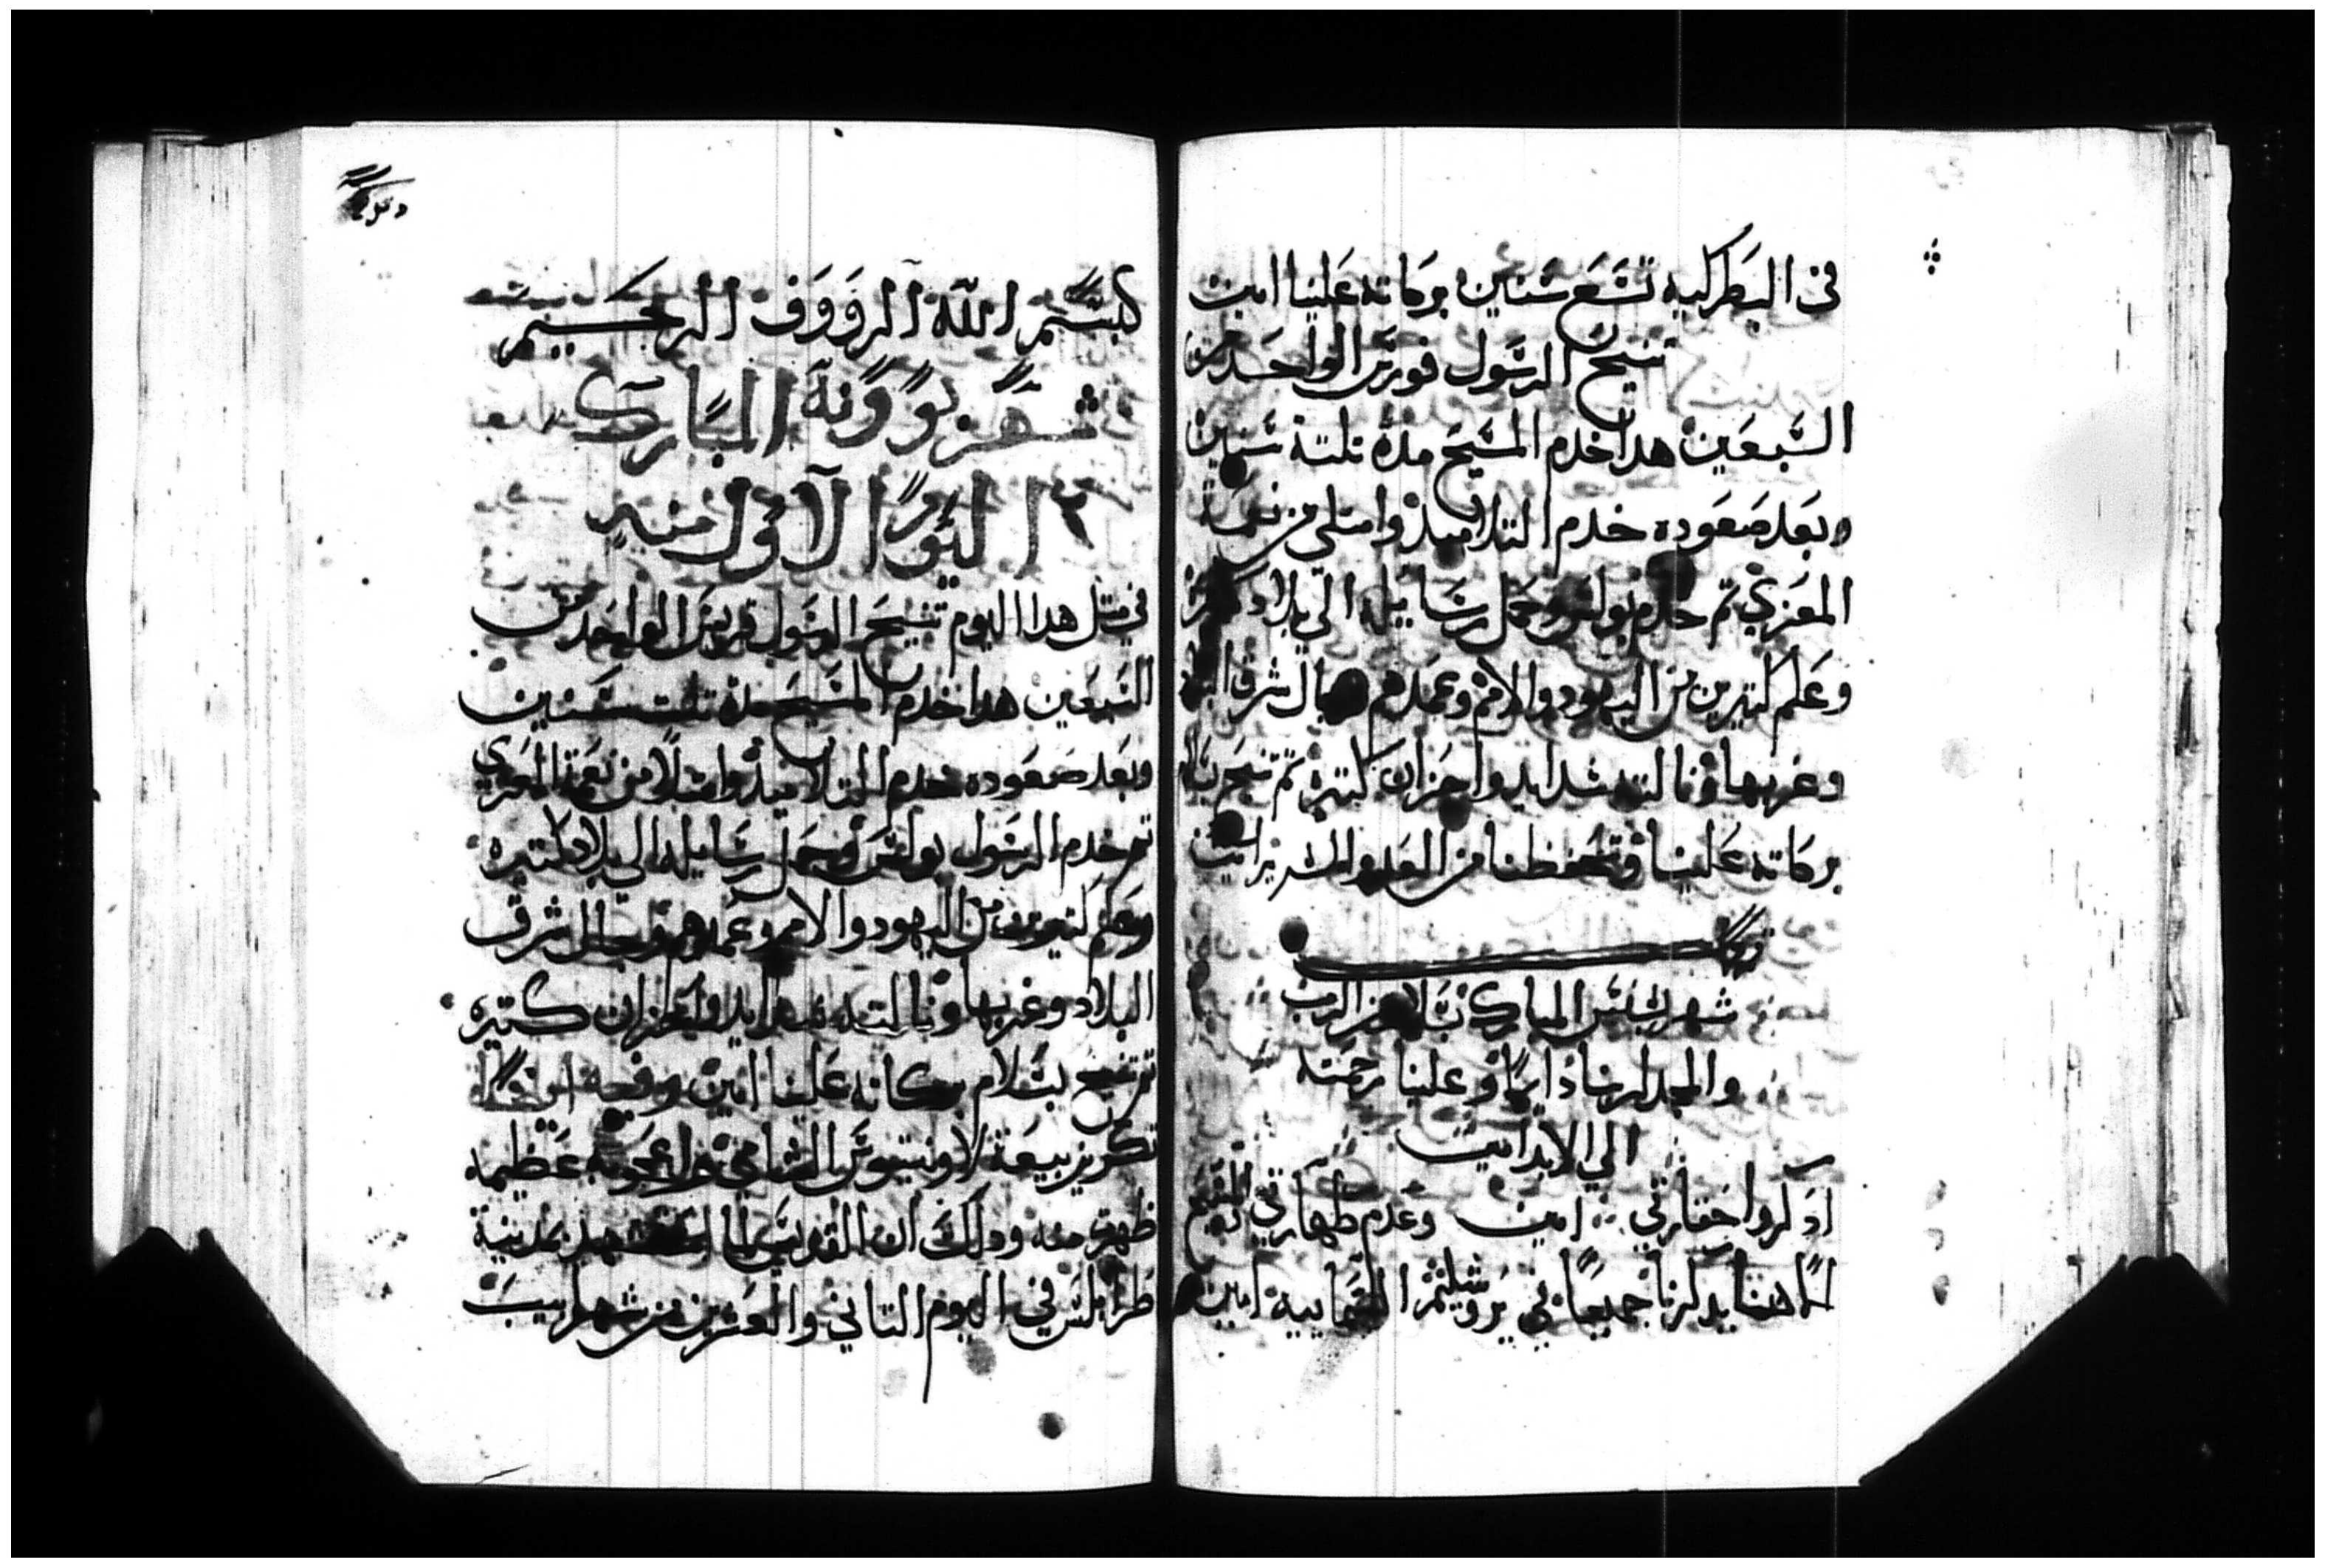 في البطركيه تسع سنين بركاته علينا امين
تنيح الرسول قورتس الواحد من
السبعين هدا خدم المسيح مدة تلتة سنين
وبعد صعوده خدم التلاميذ وامتلي من نعمة
المعزي تم خدم بولس وحمل رسايله الي بلاد كتيره
وعلم كتيرين من اليهود والامم وعمدهم وجال شرق البلاد
وغربها ونالته شدايد واحزان كتيره تم تنيح بسلام
بركاته علينا وتحفظنا من العدو الشرير امين
شهر بشنس المبارك بسلام من الرب
والمجد لربنا دايما وعلينا رحمته
الي الابد امين
ادكروا حقارتي امين وعدم طهارتي المسيح
الاهنا يدكرنا جميعا في يروشليم السماييه امين
بسم الله الرووف الرحيم
شهر بوونة المبارك
اليوم الاول منه
في متل هدا اليوم تنيح الرسول قربس الواحد من
السبعين هدا خدم المسيح مدة تلت سنين
وبعد صعوده خدم التلاميذ وامتلا من نعمة المعزي
تم خدم الرسول بولس وحمل رسايله الي بلاد كتيره
وعلم كتيرين من اليهود والامم وعمدهم وجال شرق
البلاد وغربها ونالته شدايد واحزان كتيره
تم تنيح بسلام بركاته علينا امين وفيه ايضا
تكريز بيعة لاونتيوس الشامي واعجوبه عظيمه
ظهرت منه ودلك ان القديس لما استشهد بمدينة
طرابلس في اليوم التاني والعشرين من شهر ابيب